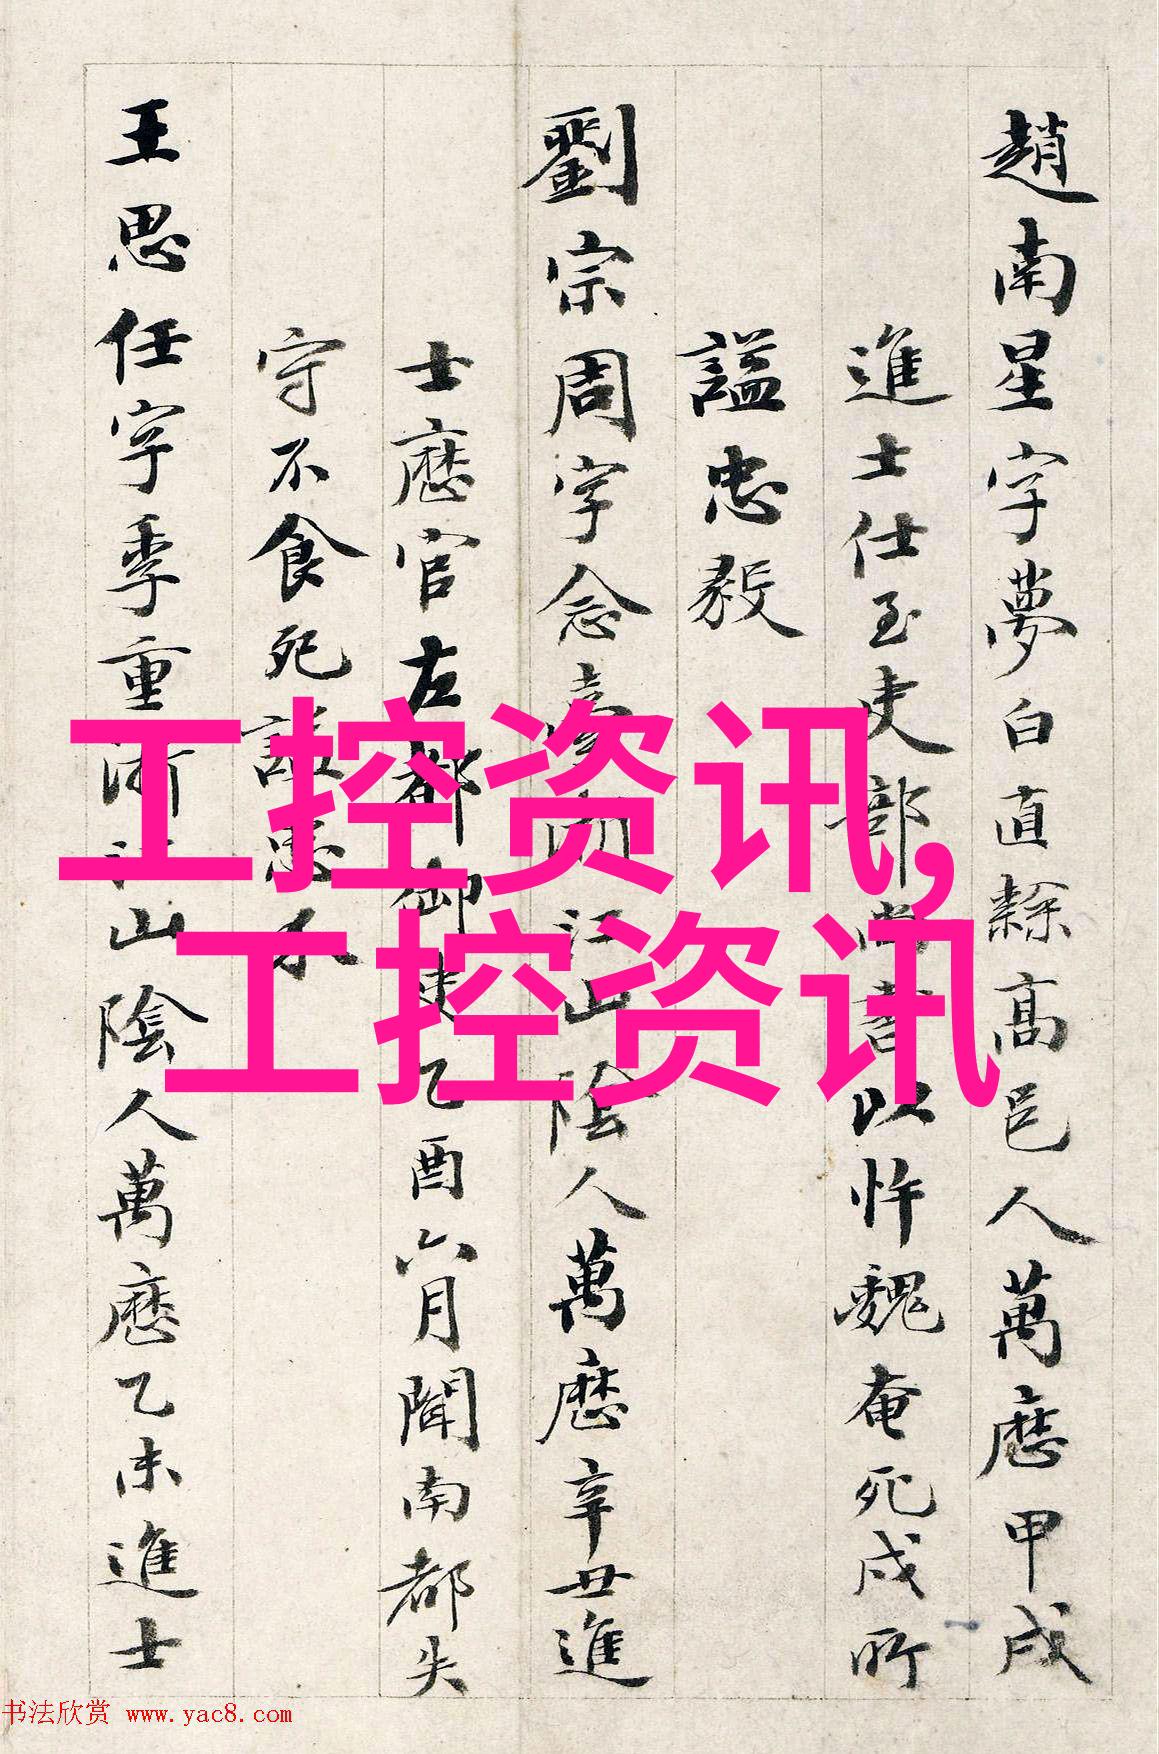 趙南星字夢白直隸高邑人萬曆甲戌
進士仕至吏部尚書以忤魏奄死戍所
諡忠毅
劉宗周字念臺浙江山陰人萬曆辛丑進
士歷官左都御史乙酉六月聞南都失
守不食死諡忠
王思任字季重浙江山陰人萬曆乙未進士
工控资讯,
工控资讯
书法欣赏 www.yac8.com